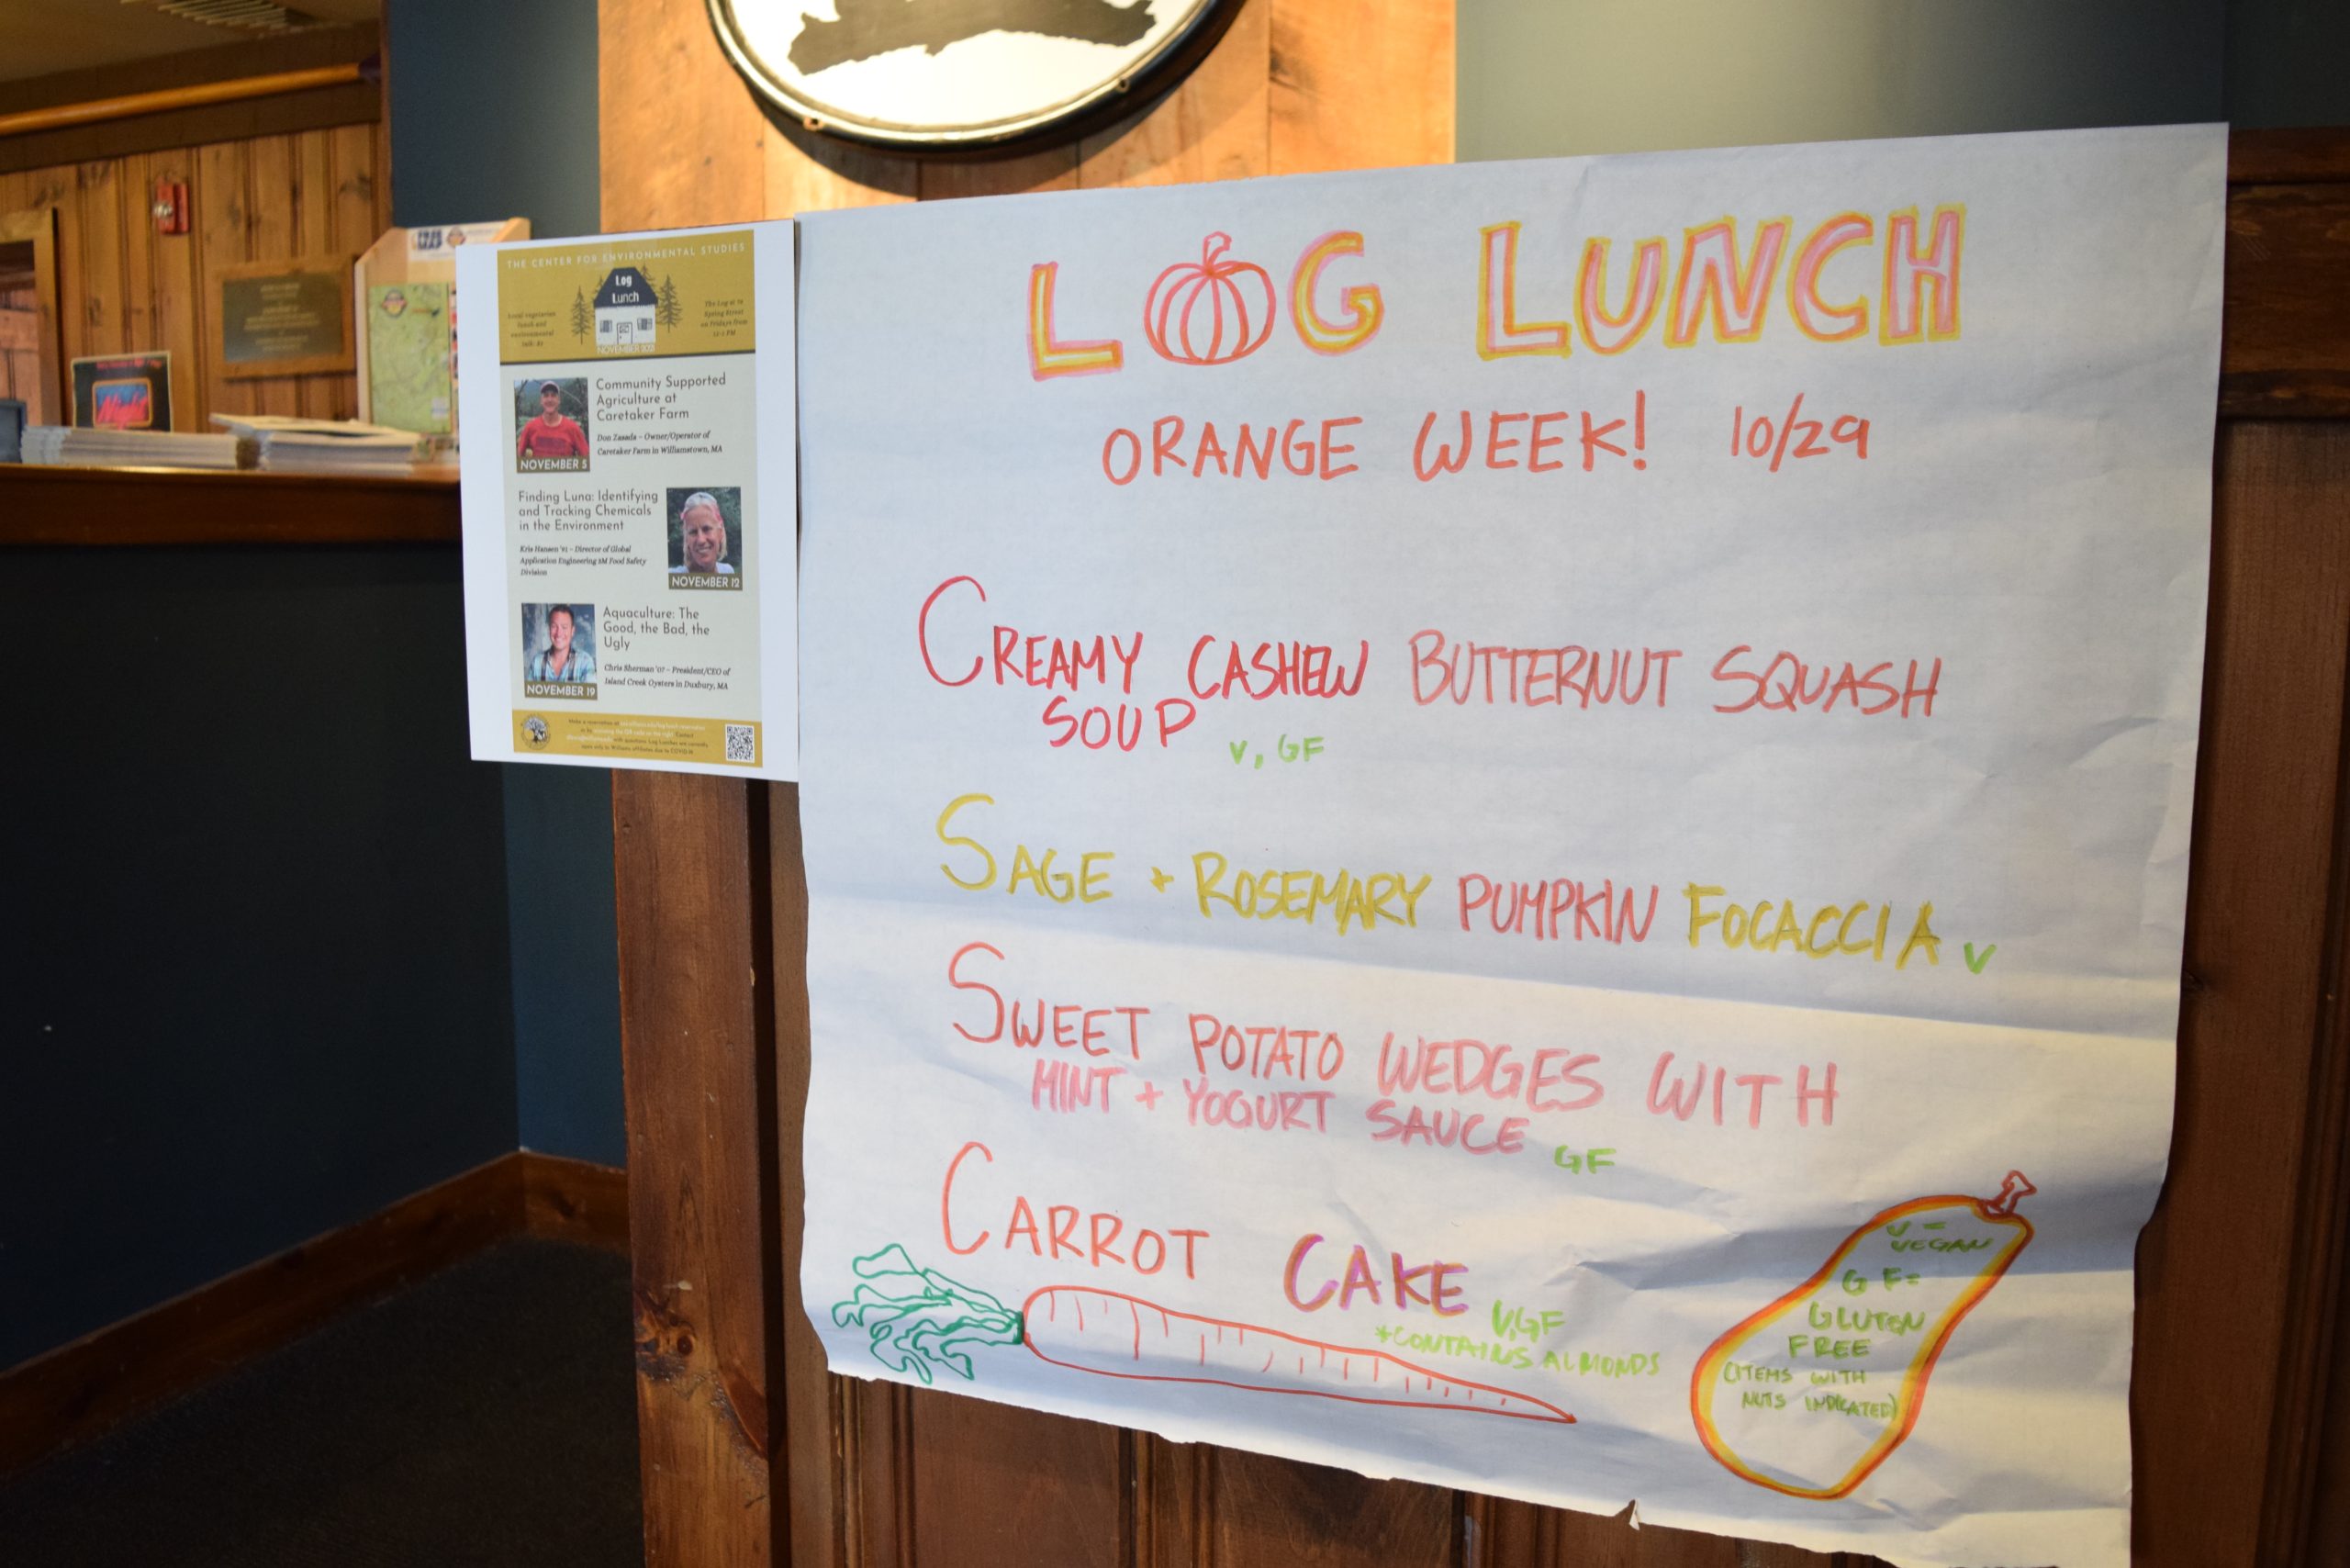 THE CENTER FOR ENVIRONMENTAL STUDIES
Log
Lunch
Local vegetarian
lunch and
environmental
talk: $5
The Log at 78
Spring Street
on Fridays from
12-1 PM
NOVEMBER 2021
Community Supported
Agriculture at
Caretaker Farm
Don Zasada – Owner/Operator of
Caretaker Farm in Williamstown, MA
NOVEMBER 5
Finding Luna: Identifying
and Tracking Chemicals
in the Environment
Kris Hansen '91 – Director of Global
Application Engineering 3M Food Safety
Division
NOVEMBER 12
Aquaculture: The
Good, the Bad, the
Ugly
Chris Sherman '07 – President/CEO of
Island Creek Oysters in Duxbury, MA
NOVEMBER 19
with questions. Log Lunches are currently
open only to Williams affiliates due to COVID-19.
LOG LUNCH
ORANGE WEEK! 10/29
CREAMY CASHEW BUTTERNUT SQUASH
SOUP V, GF
SAGE + ROSEMARY PUMPKIN FOCACCIA V
SWEET POTATO WEDGES WITH
MINT + YOGURT SAUCE GF
CARROT CAKE V,GF
*CONTAINS ALMONDS
V =
VEGAN
GF=
GLUTEN
FREE
(ITEMS WITH
NUTS INDICATED)